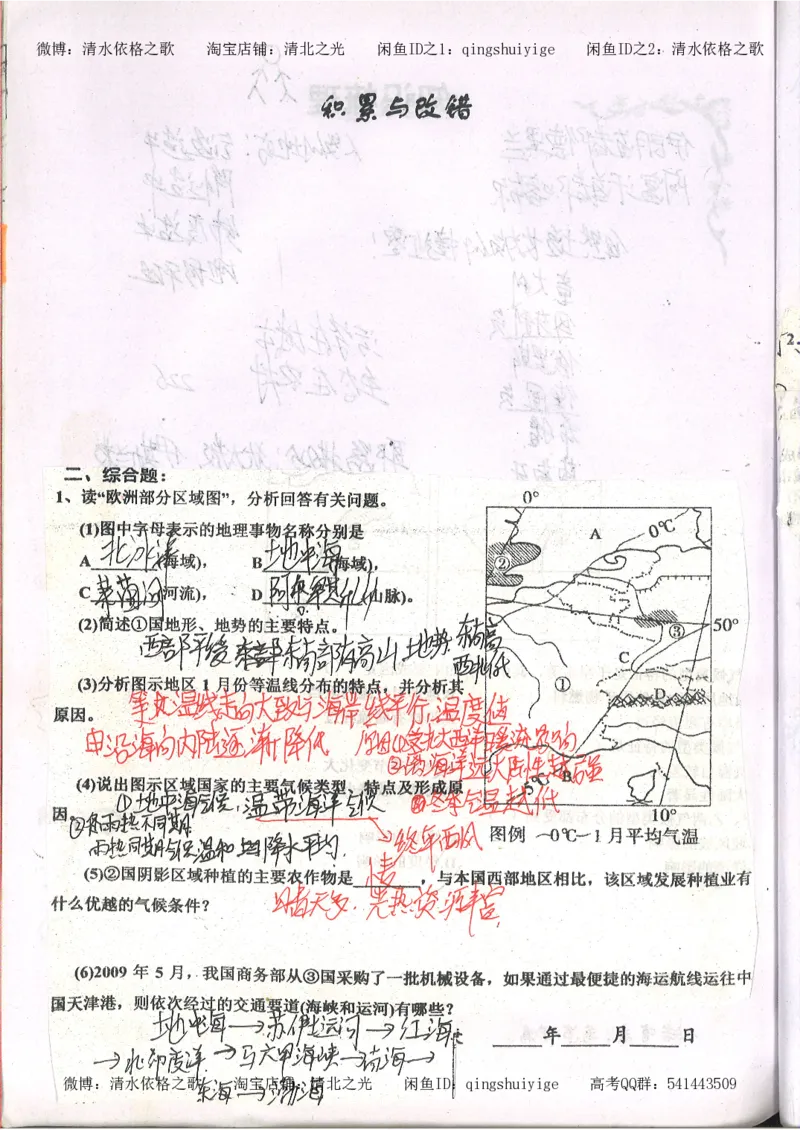 微博：清水依格之歌 淘宝店铺：清北之光 闲鱼ID之1：qingshuiyige 闲鱼ID之2：清水依格之歌
积累与改错
二、综合题：
1、读“欧洲部分区域图”，分析回答有关问题。
(1)图中字母表示的地理事物名称分别是
A 北冰洋 (海域)， B 地中海 (海域)，
C 莱茵河 (河流)， D 阿尔卑斯 (山脉)。
(2)简述①国地形、地势的主要特点。
西部平缓 东南部有高山，地势东南高
西北低
(3)分析图示地区 1 月份等温线分布的特点，并分析其
原因。
等温线走向大致与海岸线平行，温度值
由沿海向内陆逐渐降低 原因①受北大西洋暖流影响
②离海洋远大陆性越强
③冬季气温越低
(4)说出图示区域国家的主要气候类型、特点及形成原
因
①地中海气候，温带海洋气候
②雨热不同期
终年西风
(5)②国阴影区域种植的主要农作物是 ，与本国西部地区相比，该区域发展种植业有
什么优越的气候条件？
晴天多，光热资源丰富
(6)2009 年 5 月，我国商务部从③国采购了一批机械设备，如果通过最便捷的海运航线运往中
国天津港，则依次经过的交通要道(海峡和运河)有哪些？
地中海→苏伊士运河→红海
→北印度洋→马六甲海峡→南海→
东海→渤海
0°
A
0℃
②
③
50°
C
①
D
5℃
B
10°
图例 0℃ 1 月平均气温
年 月 日
微博：清水依格之歌 淘宝店铺：清北之光 闲鱼ID：qingshuiyige 高考QQ群：541443509